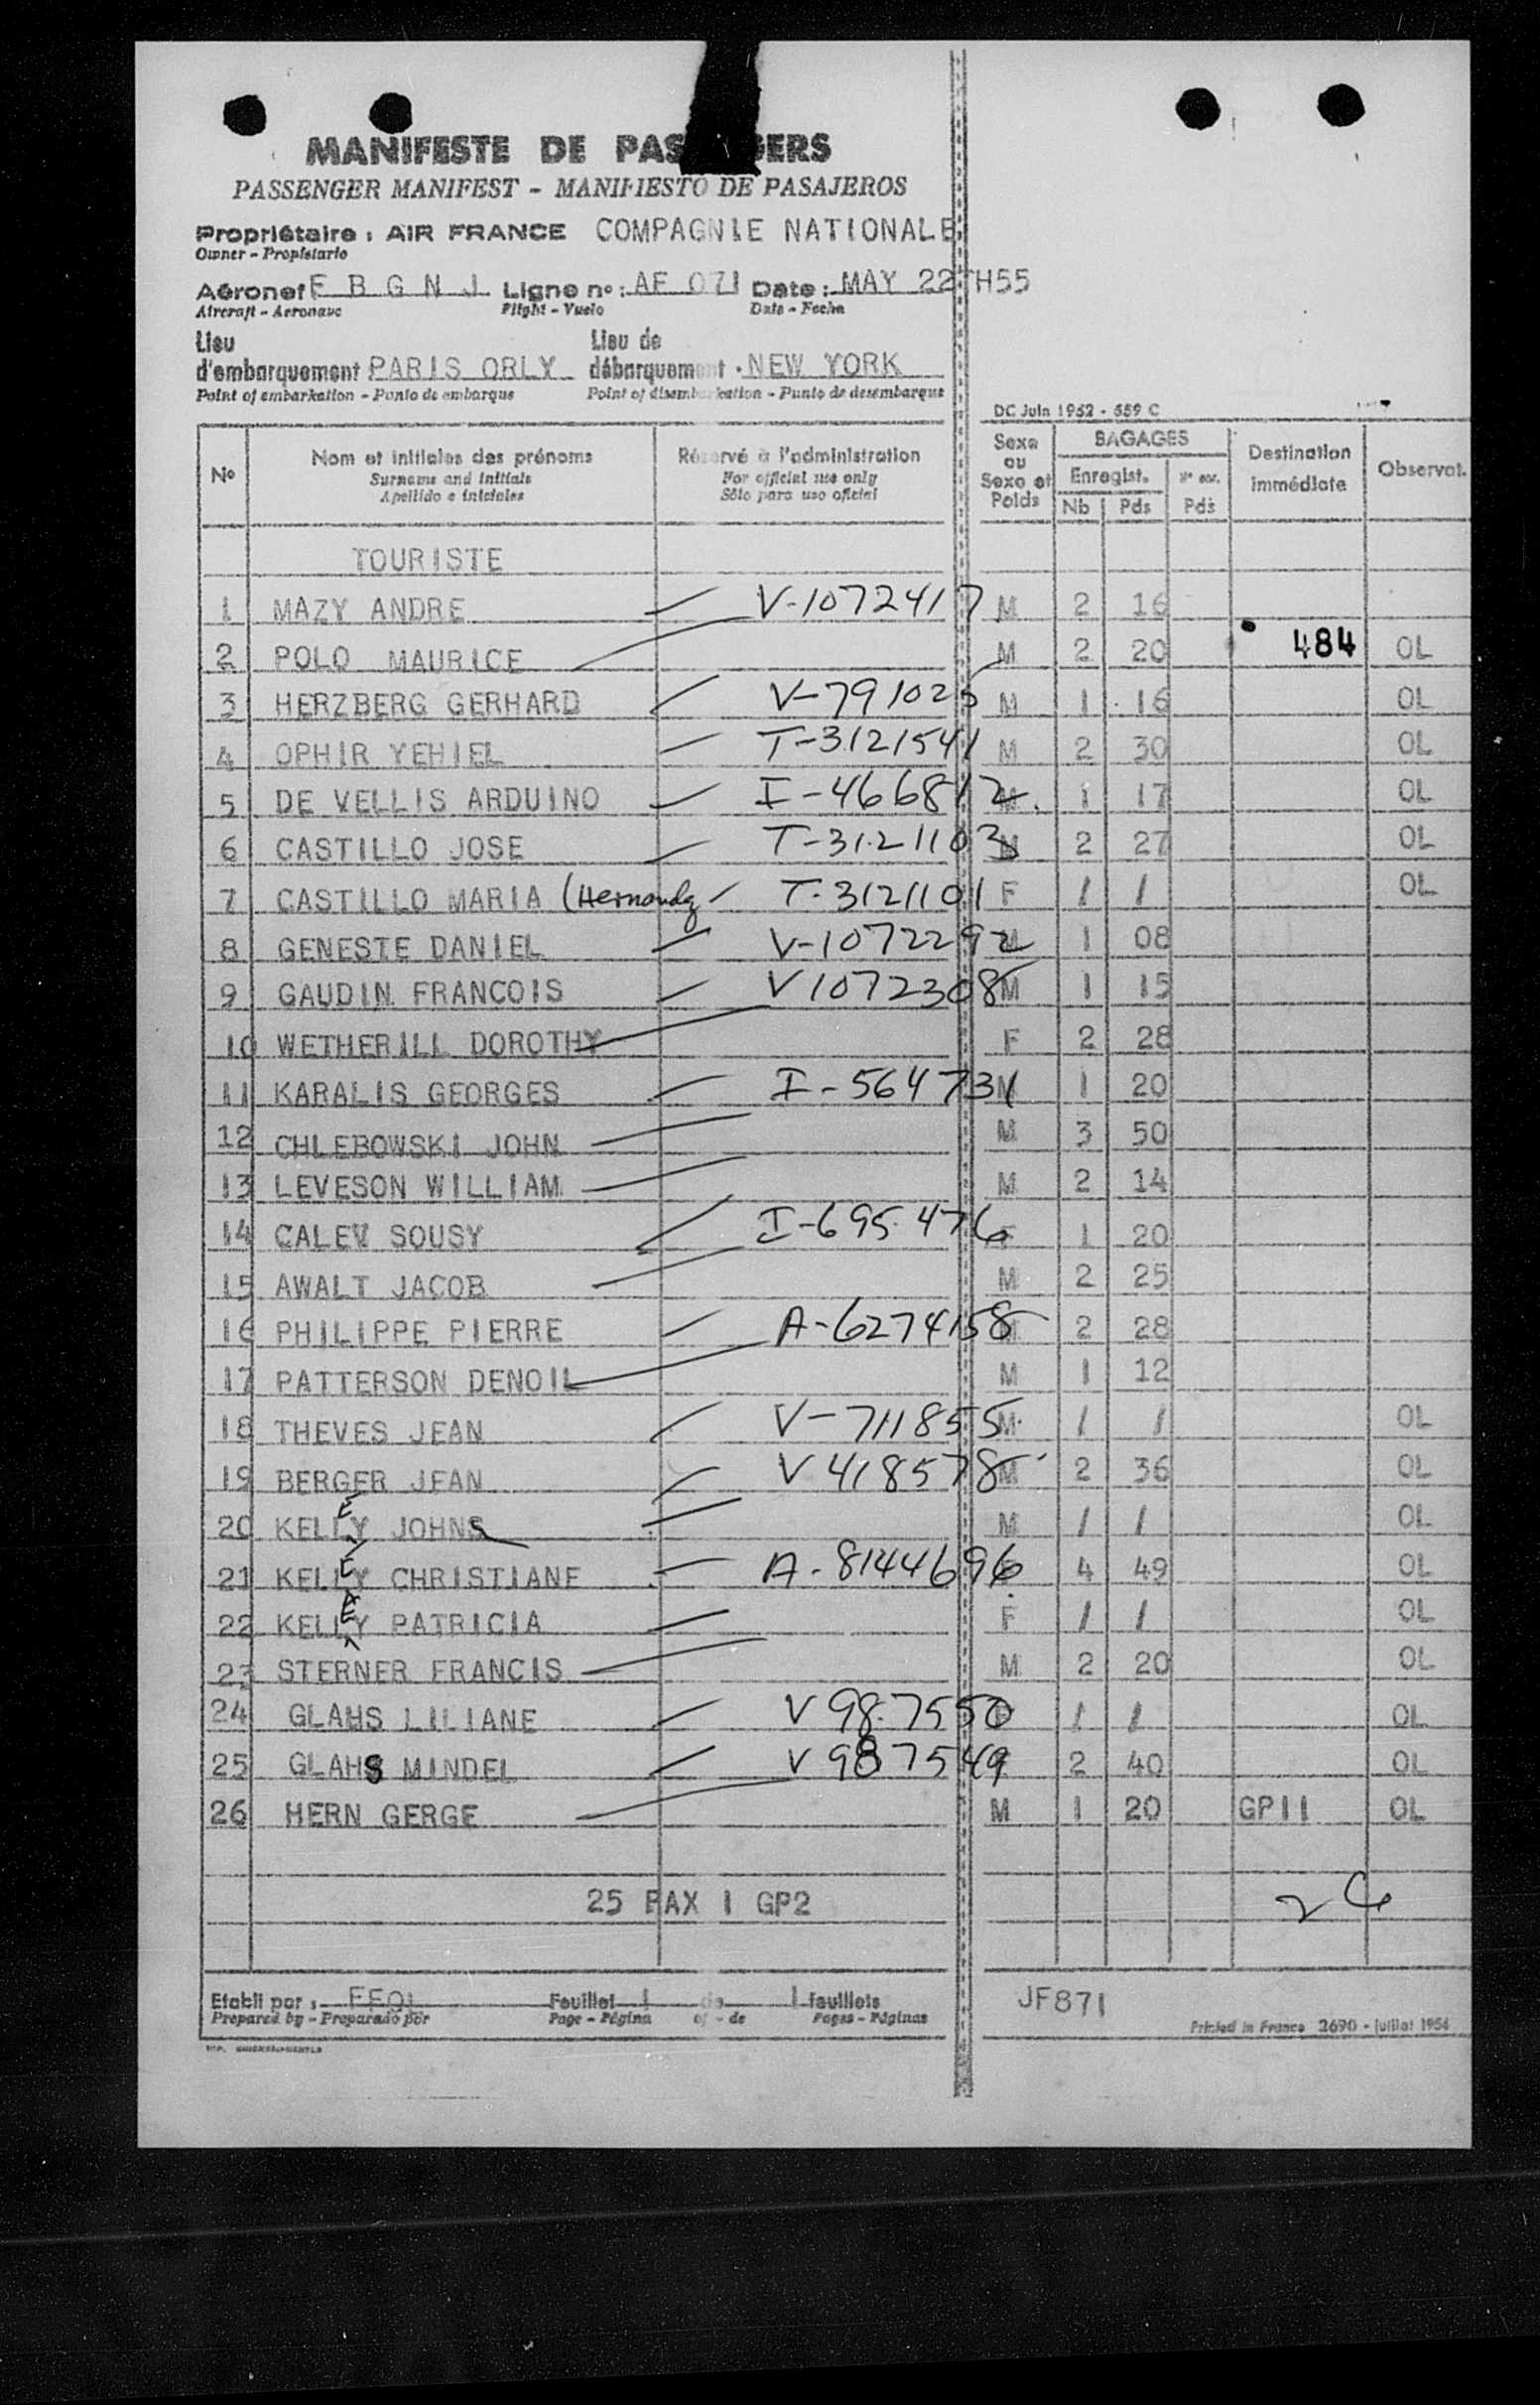 MANIFESTE DE PAS GERS
PASSENGER MANIFEST - MANIFIESTO DE PASAJEROS
Propriétaire : AIR FRANCE COMPAGNIE NATIONALE
Owner - Propietario
Aéronef F B G N J Ligne nº : AF 071 Date : MAY 22TH55
Aircraft - Aeronave Flight - Vuelo Date - Fecha
Lieu Lieu de
d'embarquement PARIS ORLY débarquement · NEW YORK
Point of embarkation - Punto de embarque Point of disembarkation - Punto de desembarque
DC Juin 1952 - 559 C
Nº Nom et initiales des prénoms Réservé à l'administration Sexe ou Sexe et Poids BAGAGES Destination immédiate Observat.
Surname and initials For official use only Enregist.
Apellido e iniciales Sólo para uso oficial Nb Pds Pds
TOURISTE
1 MAZY ANDRE V-1072417 M 2 16
2 POLO MAURICE M 2 20 484 OL
3 HERZBERG GERHARD V-791025 M 1 16 OL
4 OPHIR YEHIEL T-3121541 M 2 30 OL
5 DE VELLIS ARDUINO I-466812 M 1 17 OL
6 CASTILLO JOSE T-3121103 M 2 27 OL
7 CASTILLO MARIA (Hernandz T-3121101 F / / OL
8 GENESTE DANIEL V-1072292 M 1 08
9 GAUDIN FRANCOIS V1072308 M 1 15
10 WETHERILL DOROTHY F 2 28
11 KARALIS GEORGES I-564731 M 1 20
12 CHLEBOWSKI JOHN M 3 50
13 LEVESON WILLIAM M 2 14
14 CALEV SOUSY I-695476 F 1 20
15 AWALT JACOB M 2 25
16 PHILIPPE PIERRE A-6274158 M 2 28
17 PATTERSON DENOIL M 1 12
18 THEVES JEAN V-711855 M / / OL
19 BERGER JEAN V418578 M 2 36 OL
20 KELLEY JOHNS M / / OL
21 KELLEY CHRISTIANE A-8144696 4 49 OL
22 KELLEY PATRICIA F / / OL
23 STERNER FRANCIS M 2 20 OL
24 GLAHS LILIANE V987550 / / OL
25 GLAHS MINDEL V987549 2 40 OL
26 HERN GERGE M 1 20 GP11 OL
25 PAX 1 GP2 26
Etabli par : FFOL Feuillet 1 de 1 feuillets JF871
Prepared by - Preparado por Page - Página of - de Pages - Páginas
Printed in France 2690 - juillet 1954